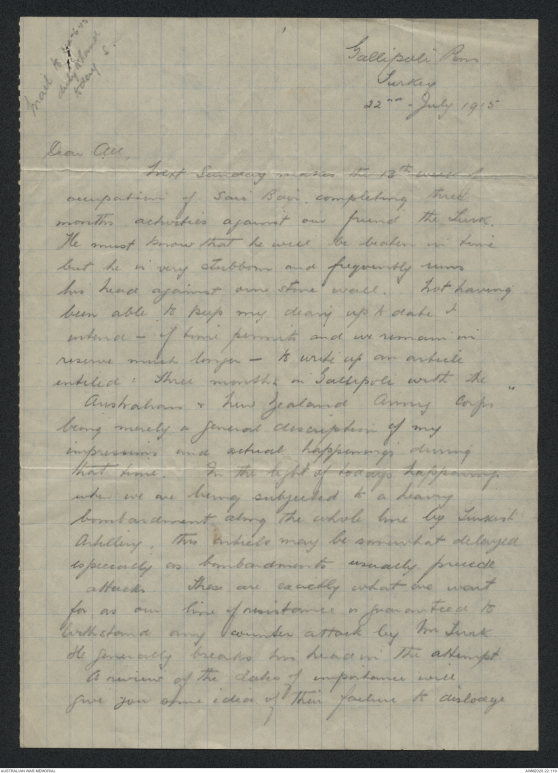 Gallipoli Pen
Turkey
22nd July 1915
Dear All,
Next Sunday makes the 13th week of
occupation of Sari Bair, completing three
months activities against our friend the Turk.
He must know that he will be beaten in time
but he is very stubborn and frequently runs
his head against our stone wall. Not having
been able to keep my diary up to date I
intend - if time permits and we remain in
reserve much longer - to write up an article
entitled: Three months in Gallipoli with the
Australian & New Zealand Army Corps"
being merely a general description of my
impressions and actual happenings during
that time. In the light of todays happenings
when we are being subjected to a heavy
bombardment along the whole line by Turkish
Artillery, this article may be somewhat delayed
especially as bombardments usually precede
attacks. These are exactly what we want
for as our line of resistance is guaranteed to
withstand any counter attack by Mr Turk
He generally breaks his head in the attempt
A review of the dates of importance will
give you some idea of their failure to dislodge
AUSTRALIAN WAR MEMORIAL